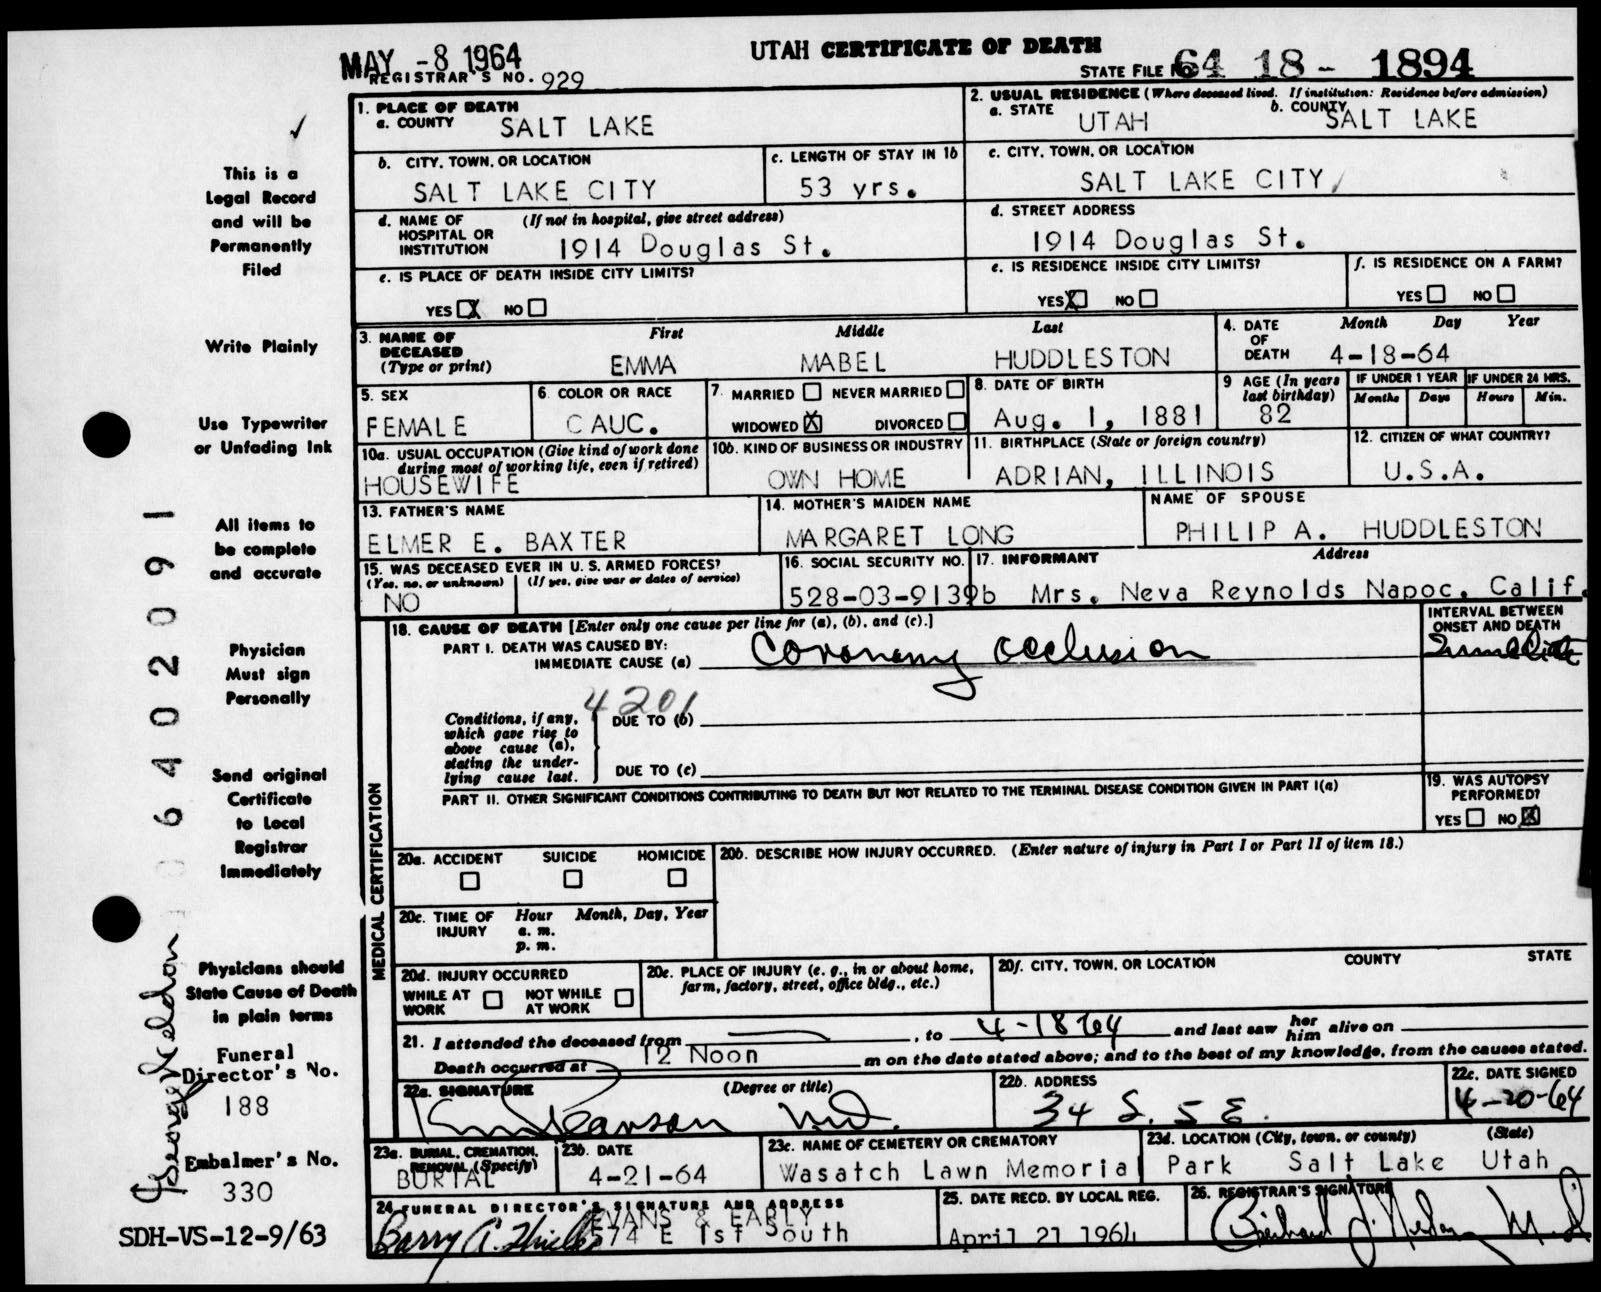 MAY -8 1964
UTAH CERTIFICATE OF DEATH
REGISTRAR'S NO. 929
STATE FILE NO. 64 18 - 1894
1. PLACE OF DEATH
a. COUNTY SALT LAKE
2. USUAL RESIDENCE (Where deceased lived. If institution: Residence before admission)
a. STATE UTAH b. COUNTY SALT LAKE
b. CITY, TOWN, OR LOCATION SALT LAKE CITY
c. LENGTH OF STAY IN 1b 53 yrs.
c. CITY, TOWN, OR LOCATION SALT LAKE CITY
d. NAME OF HOSPITAL OR INSTITUTION (If not in hospital, give street address) 1914 Douglas St.
d. STREET ADDRESS 1914 Douglas St.
e. IS PLACE OF DEATH INSIDE CITY LIMITS?
YES X NO
e. IS RESIDENCE INSIDE CITY LIMITS?
YES X NO
f. IS RESIDENCE ON A FARM?
YES NO
3. NAME OF DECEASED (Type or print)
First Middle Last
EMMA MABEL HUDDLESTON
4. DATE OF DEATH
Month Day Year
4-18-64
5. SEX FEMALE
6. COLOR OR RACE CAUC.
7. MARRIED NEVER MARRIED
WIDOWED X DIVORCED
8. DATE OF BIRTH Aug. 1, 1881
9 AGE (In years last birthday) 82
IF UNDER 1 YEAR Months Days
IF UNDER 24 HRS. Hours Min.
10a. USUAL OCCUPATION (Give kind of work done during most of working life, even if retired)
HOUSEWIFE
10b. KIND OF BUSINESS OR INDUSTRY
OWN HOME
11. BIRTHPLACE (State or foreign country)
ADRIAN, ILLINOIS
12. CITIZEN OF WHAT COUNTRY?
U.S.A.
13. FATHER'S NAME
ELMER E. BAXTER
14. MOTHER'S MAIDEN NAME
MARGARET LONG
NAME OF SPOUSE
PHILIP A. HUDDLESTON
15. WAS DECEASED EVER IN U. S. ARMED FORCES?
(Yes, no, or unknown) (If yes, give war or dates of service)
NO
16. SOCIAL SECURITY NO.
528-03-9139b
17. INFORMANT Address
Mrs. Neva Reynolds Napoc. Calif.
MEDICAL CERTIFICATION
18. CAUSE OF DEATH [Enter only one cause per line for (a), (b), and (c).]
PART I. DEATH WAS CAUSED BY:
IMMEDIATE CAUSE (a) Coronary occlusion
INTERVAL BETWEEN ONSET AND DEATH
Immediate
4201
Conditions, if any, which gave rise to above cause (a), stating the underlying cause last.
DUE TO (b)
DUE TO (c)
PART II. OTHER SIGNIFICANT CONDITIONS CONTRIBUTING TO DEATH BUT NOT RELATED TO THE TERMINAL DISEASE CONDITION GIVEN IN PART I(a)
19. WAS AUTOPSY PERFORMED?
YES NO X
20a. ACCIDENT SUICIDE HOMICIDE
20b. DESCRIBE HOW INJURY OCCURRED. (Enter nature of injury in Part I or Part II of item 18.)
20c. TIME OF INJURY Hour Month, Day, Year
a. m.
p. m.
20d. INJURY OCCURRED
WHILE AT WORK NOT WHILE AT WORK
20e. PLACE OF INJURY (e. g., in or about home, farm, factory, street, office bldg., etc.)
20f. CITY, TOWN, OR LOCATION COUNTY STATE
21. I attended the deceased from , to 4-18-64 and last saw her him alive on
Death occurred at 12 Noon m on the date stated above; and to the best of my knowledge, from the causes stated.
22a. SIGNATURE (Degree or title)
M.D.
22b. ADDRESS
34 S. 5 E.
22c. DATE SIGNED
4-20-64
23a. BURIAL, CREMATION, REMOVAL (Specify)
BURIAL
23b. DATE
4-21-64
23c. NAME OF CEMETERY OR CREMATORY
23d. LOCATION (City, town, or county) (State)
Wasatch Lawn Memorial Park Salt Lake Utah
24 FUNERAL DIRECTOR'S SIGNATURE AND ADDRESS
EVANS & EARLY
574 E 1st South
25. DATE RECD. BY LOCAL REG.
April 21 1964
26. REGISTRAR'S SIGNATURE
This is a
Legal Record
and will be
Permanently
Filed
Write Plainly
Use Typewriter
or Unfading Ink
All items to
be complete
and accurate
Physician
Must sign
Personally
Send original
Certificate
to Local
Registrar
Immediately
Physicians should
State Cause of Death
in plain terms
Funeral
Director's No.
188
Embalmer's No.
330
SDH-VS-12-9/63
06402091